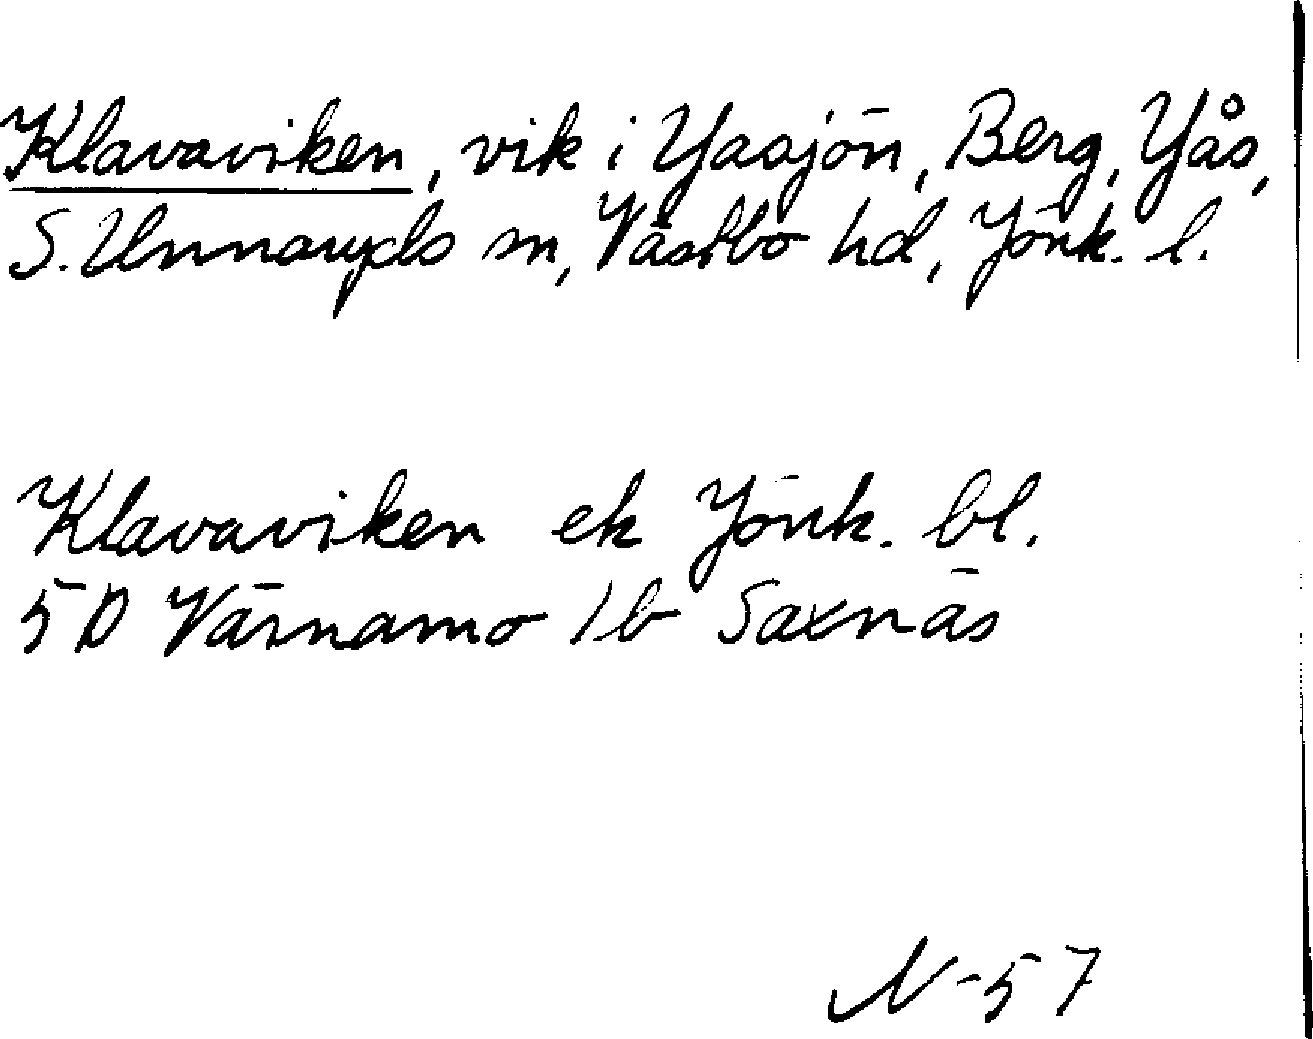 Klavaviken, vik i Yasjön, Berg, Yås,
S. Unnaryds sn, Västbo hd, Jönk. l.
Klavaviken ek Jönk. bl.
5D Värnamo 1b Saxnäs
N-57